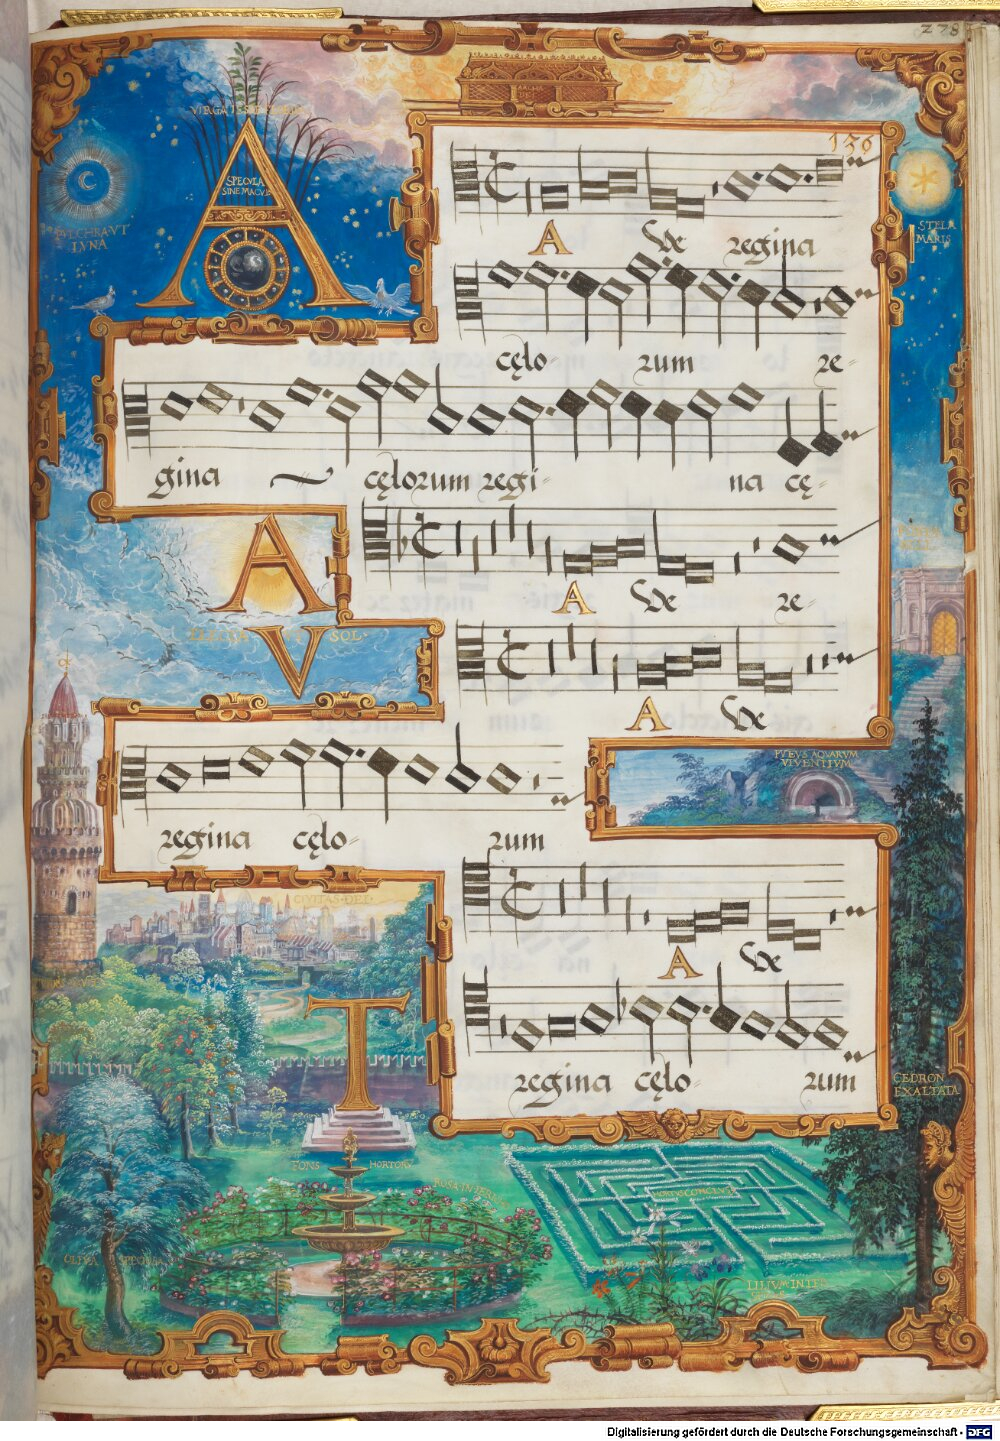 278
136
SPECVLA
SINE MACVLA
PVLCHRA VT
LVNA
STELLA
MARIS
A Ve regina
cęlo- rum re-
gina cęlorum regi- na cę-
A Ve re-
SOL
A Ve
PVTEVS AQVARVM
VIVENTIVM
regina cęlo- rum
CIVITAS DEI
A Ve
T
regina cęlo- rum
CEDRON
EXALTATA
FONS HORTORV
HORTVS CONCLVSVS
OLIVA SPECIOSA
LILIVM INTER
Digitalisierung gefördert durch die Deutsche Forschungsgemeinschaft - DFG